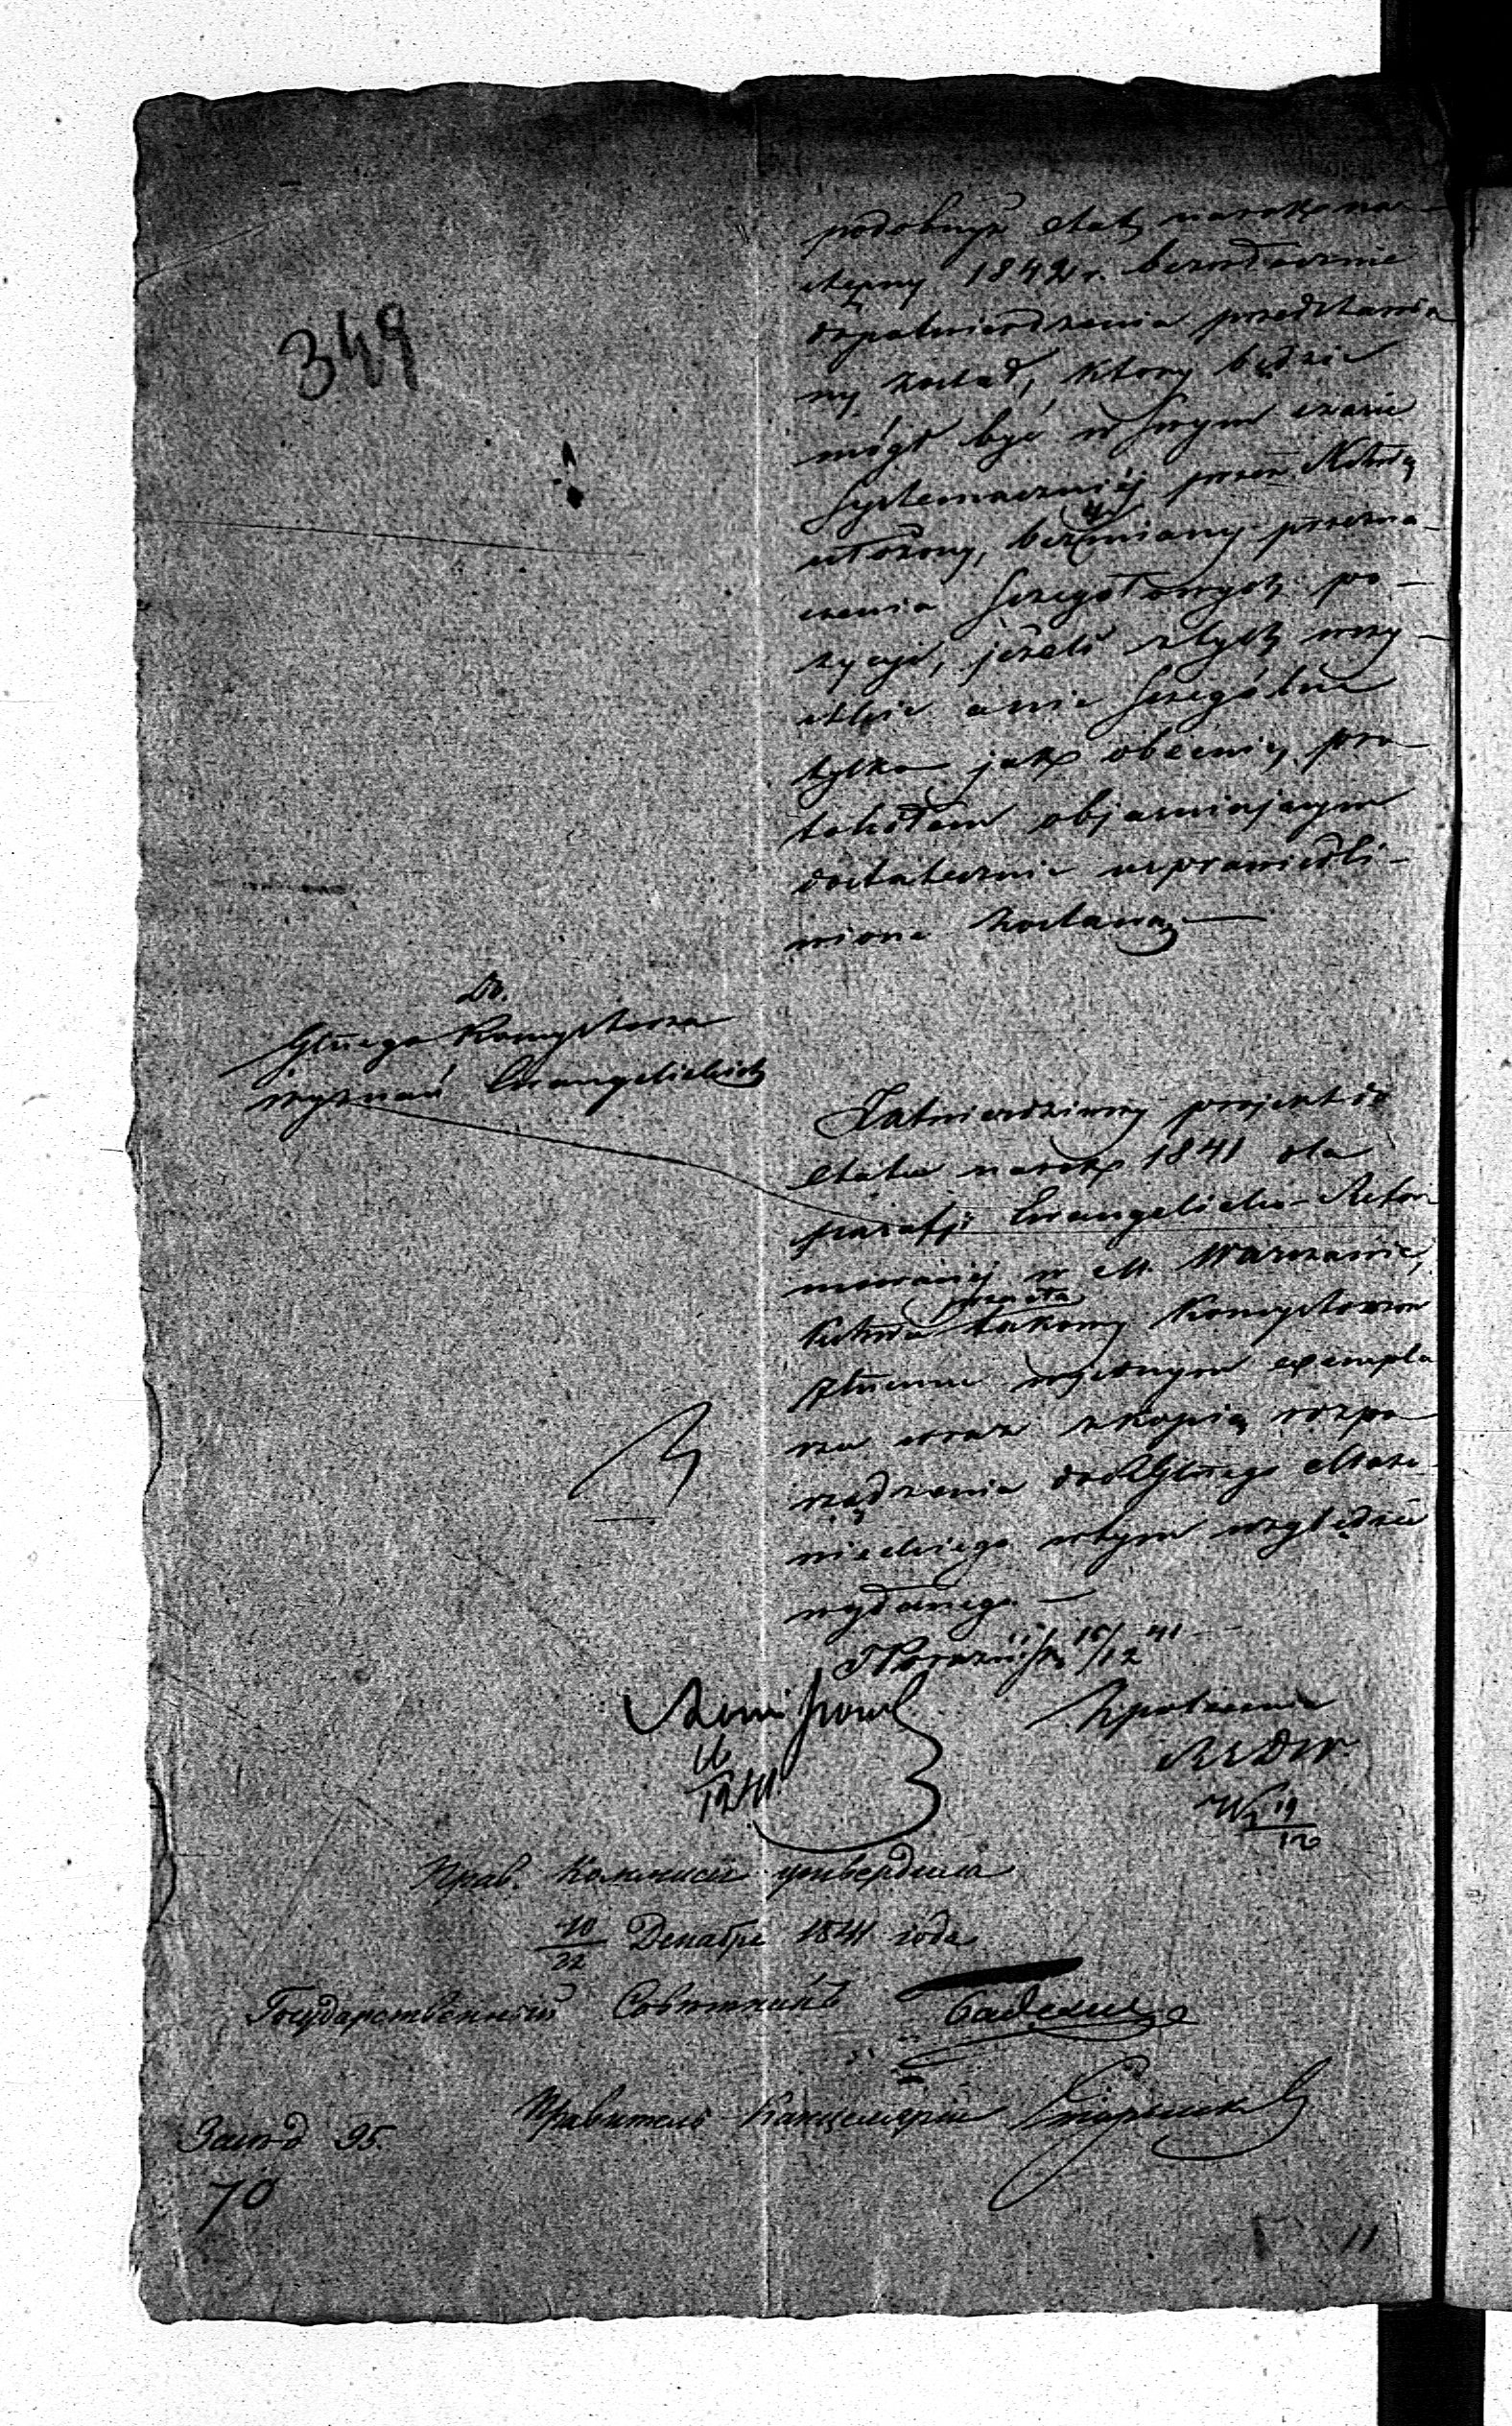 349
podobnyż etat na rok na-
stępny 1842 r. bezwłocznie
do zatwierdzenia przedstawio
ny został, który będzie
mógł być w swym czasie
systematczniej przez
ułożony, bez zmiany przezna-
czenia szczegółowych po-
zycyi, jeżeli z tych wszy-
stkie a nie szczególne
tylko jak obecnie, pro
tokołem objasniającym
dostatecznie usprawiedli-
wione zostaną
Do.
Głnego Konsystorza
wyznań Ewangelickich
Zatwierdziwszy projekt do
etatu na rok 1841 dla
parafji Ewangelicko-Refor
mowanej w M. Warszawie,
przesyła
takowy Konsystorzowi
Głnemu w jednym exempla
rzu wraz z kopią rozpo
rządzenia do Głnego Mazo
wieckiego w tym względzie
wydanego.
15/12 41
16
12 41
Z polecenia
19
12
Прав. Коммисія утвердила
10
22 Декабря 1841 года
Государственный Совѣтникъ
Правитель Канцеляріи
95.
70
11